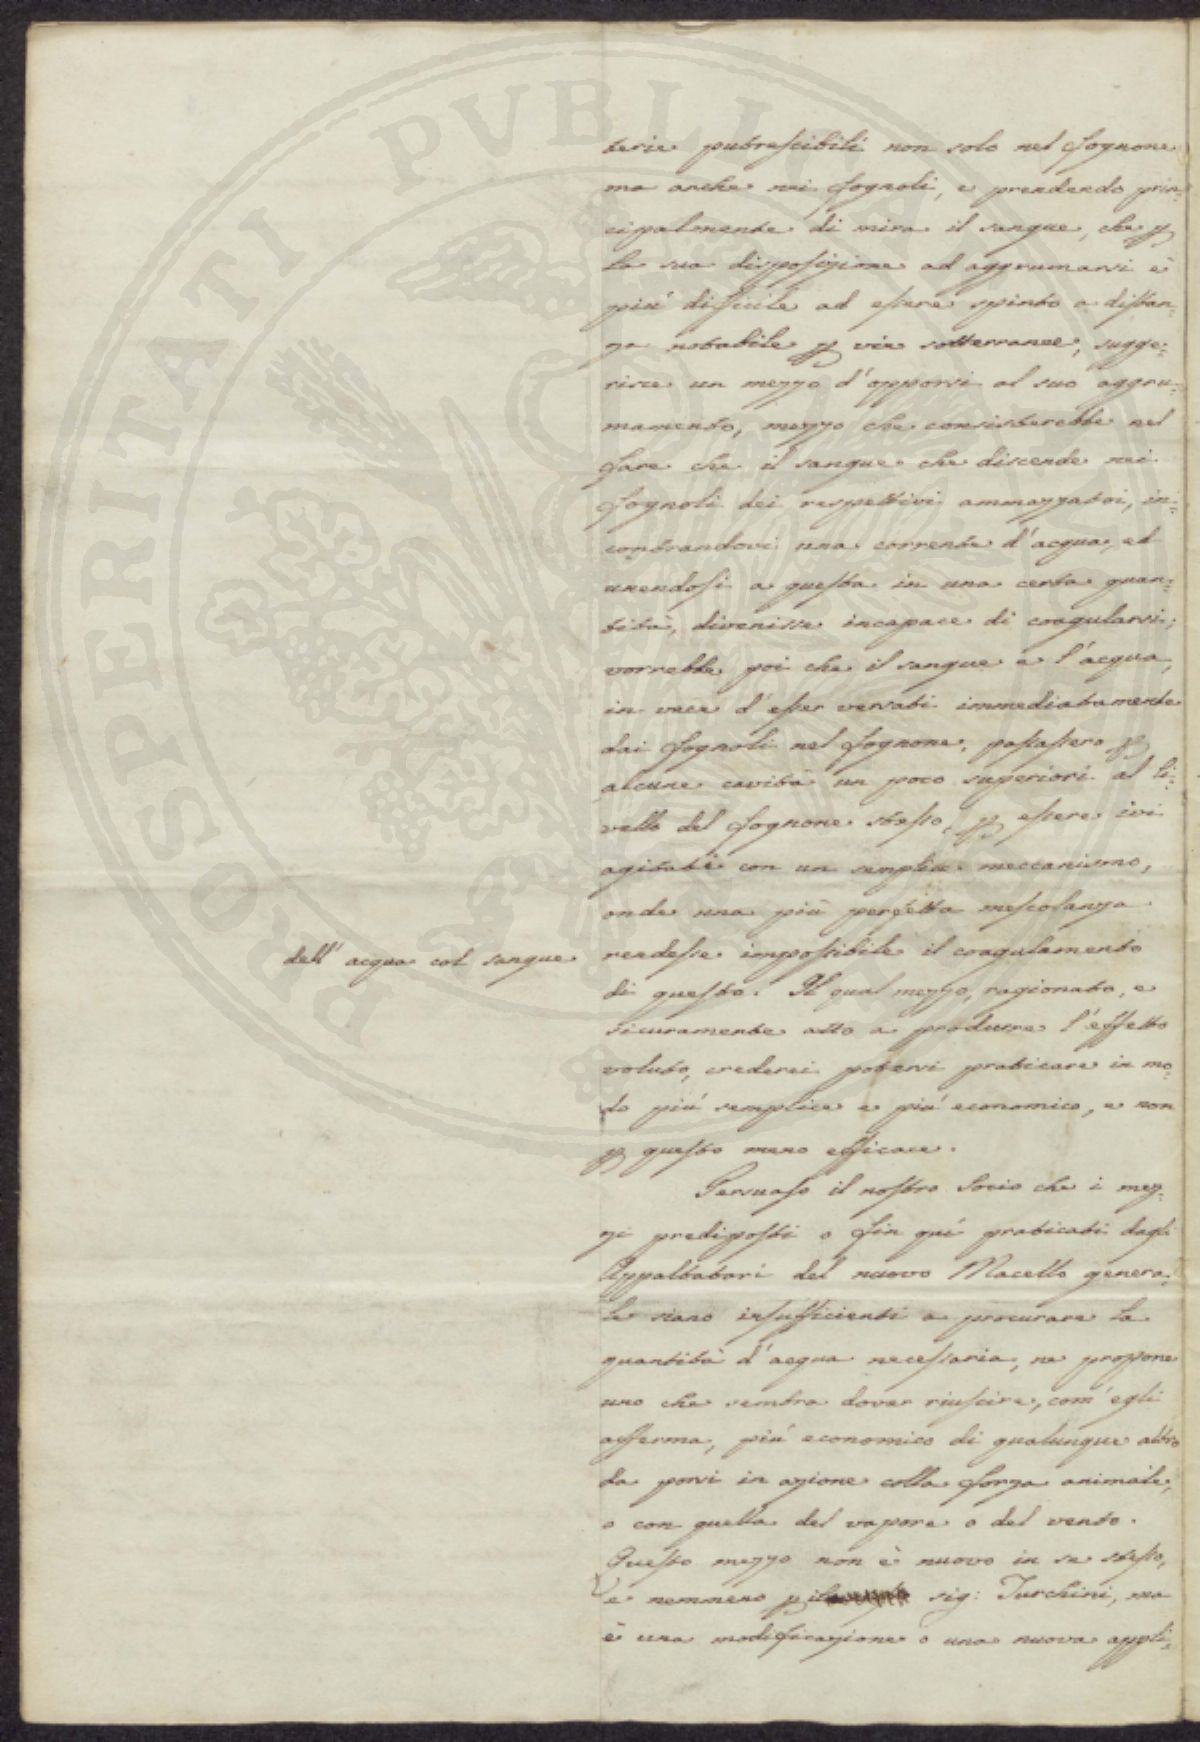 terie putrescibili non solo nel fognone
ma anche nei fognoli, e prendendo prin-
cipalmente di mira il sangue, che p
la sua disposizione ad aggrumarsi è
piú difficile ad essere spinto a distan-
za notabile p vie sotterranee, sugge-
risce un mezzo d'opporsi al suo aggru-
mamento, mezzo che consisterebbe nel
fare che il sangue che discende nei
fognoli dei respettivi ammazzatoi, in-
contrandovi una corrente d'acqua, ed
unendosi a questa in una certa quan-
tità, divenisse incapace di coagularsi;
vorrebbe poi che il sangue e l'acqua,
in vece d'esser versati immediatamente
dai fognoli nel fognone, passassero p
alcune cavità un poco superiori al li-
vello del fognone stesso, p essere ivi
agitati con un semplice meccanismo,
onde una più perfetta mescolanza
dell' acqua col sangue
rendesse impossibile il coagulamento
di questo. Il qual mezzo, ragionato, e
sicuramente atto a produrre l'effetto
voluto, crederei potersi praticare in mo-
do piú semplice e piú economico, e non
p questo meno efficace.
Persuaso il nostro Socio che i mez-
zi predisposti o fin quì praticati dagli
Appaltatori del nuovo Macello genera-
le siano insufficienti a procurare la
quantità d'acqua necessaria, ne propone
uno che sembra dover riuscire, com'egli
afferma, piú economico di qualunque altro
da porsi in azione colla forza animale,
o con quella del vapore o del vento.
Questo mezzo non è nuovo in se stesso,
e nemmeno p il sig: Turchini, ma
è una modificazione o una nuova appli-
PROSPERITATI PUBLICAE